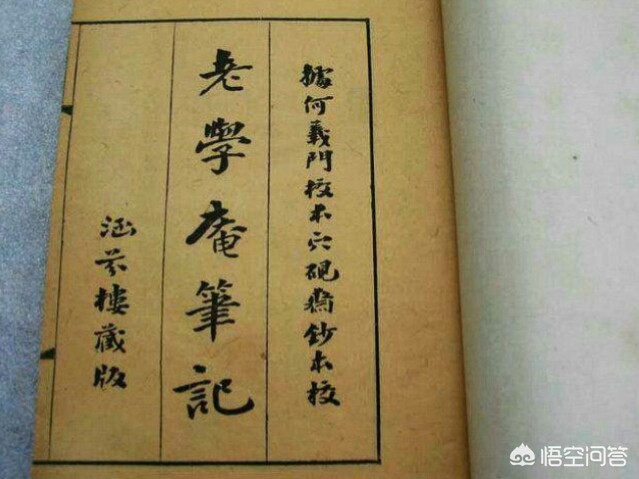 據何義門校本穴硯齋鈔本校
老學庵筆記
涵芬樓藏版
悟空问答